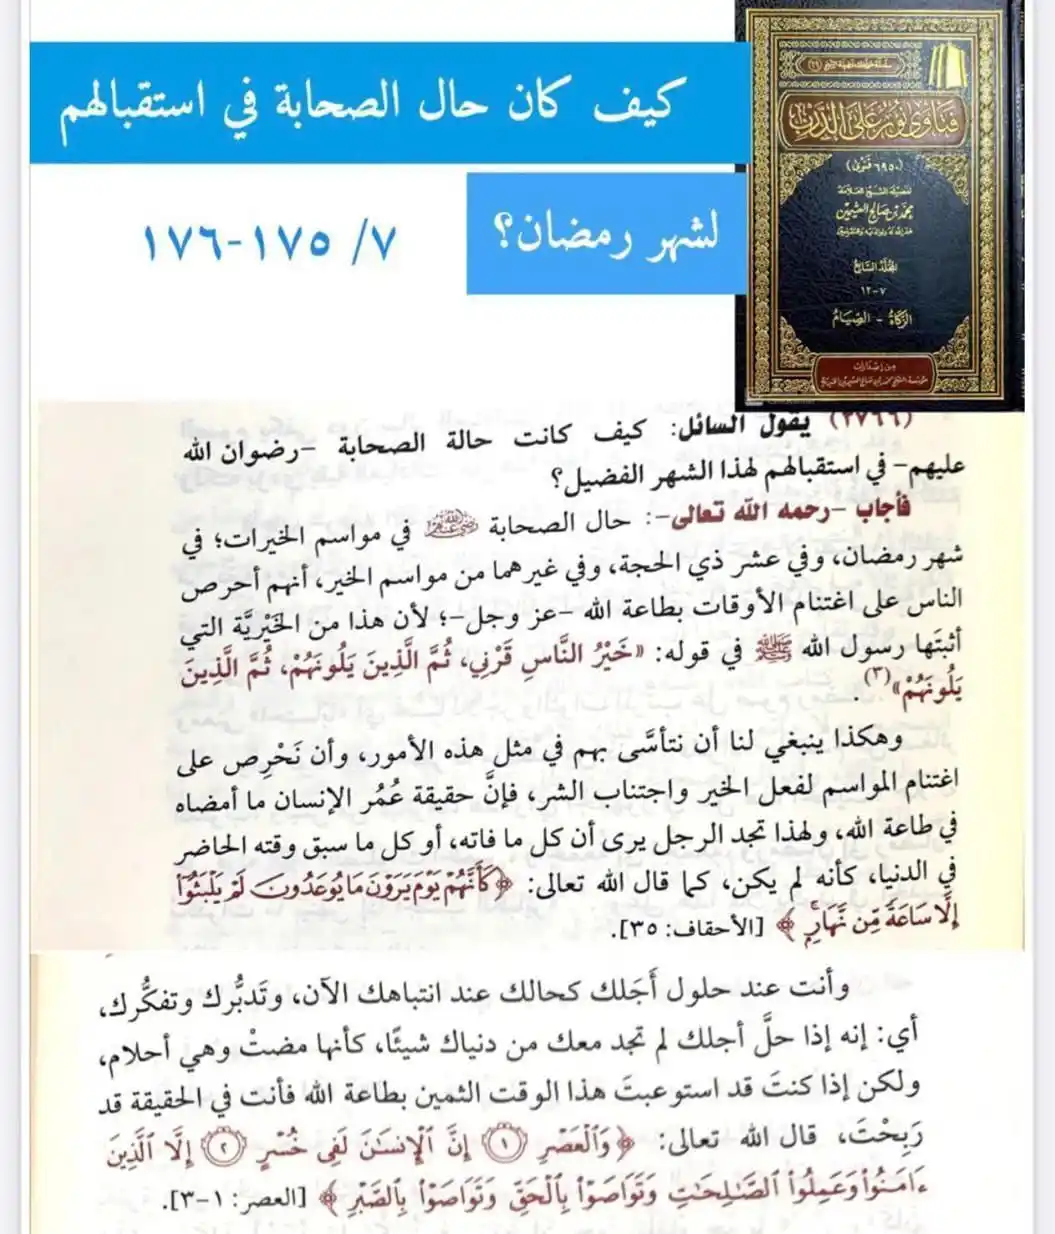 كيف كان حال الصحابة في استقبالهم
لشهر رمضان؟
٧/ ١٧٥-١٧٦
فتاوى نور على الدرب
(٦٩٥٠ فتوى)
لفضيلة الشيخ العلامة
محمد بن صالح العثيمين
المجلد السابع
١٢-٧
الزكاة - الصيام
من إصدارات
مؤسسة الشيخ محمد بن صالح العثيمين الخيرية
(٣٧٦٦) يقول السائل: كيف كانت حالة الصحابة -رضوان الله
عليهم- في استقبالهم لهذا الشهر الفضيل؟
فأجاب -رحمه الله تعالى-: حال الصحابة رضي الله عنهم في مواسم الخيرات؛ في
شهر رمضان، وفي عشر ذي الحجة، وفي غيرهما من مواسم الخير، أنهم أحرص
الناس على اغتنام الأوقات بطاعة الله -عز وجل-؛ لأن هذا من الخَيْرِيَّة التي
أثبتَها رسول الله ﷺ في قوله: «خَيْرُ النَّاسِ قَرْنِي، ثُمَّ الَّذِينَ يَلُونَهُمْ، ثُمَّ الَّذِينَ
يَلُونَهُمْ»(٣).
وهكذا ينبغي لنا أن نتأسَّى بهم في مثل هذه الأمور، وأن نَحْرِص على
اغتنام المواسم لفعل الخير واجتناب الشر، فإنَّ حقيقة عُمُر الإنسان ما أمضاه
في طاعة الله، ولهذا تجد الرجل يرى أن كل ما فاته، أو كل ما سبق وقته الحاضر
في الدنيا، كأنه لم يكن، كما قال الله تعالى: ﴿كَأَنَّهُمْ يَوْمَ يَرَوْنَ مَا يُوعَدُونَ لَمْ يَلْبَثُوٓا۟
إِلَّا سَاعَةً مِّن نَّهَارٍ﴾ [الأحقاف: ٣٥].
وأنت عند حلول أَجَلك كحالك عند انتباهك الآن، وتَدبُّرك وتفكُّرك،
أي: إنه إذا حلَّ أجلك لم تجد معك من دنياك شيئًا، كأنها مضتْ وهي أحلام،
ولكن إذا كنتَ قد استوعبتَ هذا الوقت الثمين بطاعة الله فأنت في الحقيقة قد
رَبِحْتَ، قال الله تعالى: ﴿وَٱلْعَصْرِ ١ إِنَّ ٱلْإِنسَٰنَ لَفِى خُسْرٍ ٢ إِلَّا ٱلَّذِينَ
ءَامَنُوا۟ وَعَمِلُوا۟ ٱلصَّٰلِحَٰتِ وَتَوَاصَوْا۟ بِٱلْحَقِّ وَتَوَاصَوْا۟ بِٱلصَّبْرِ﴾ [العصر: ١-٣].